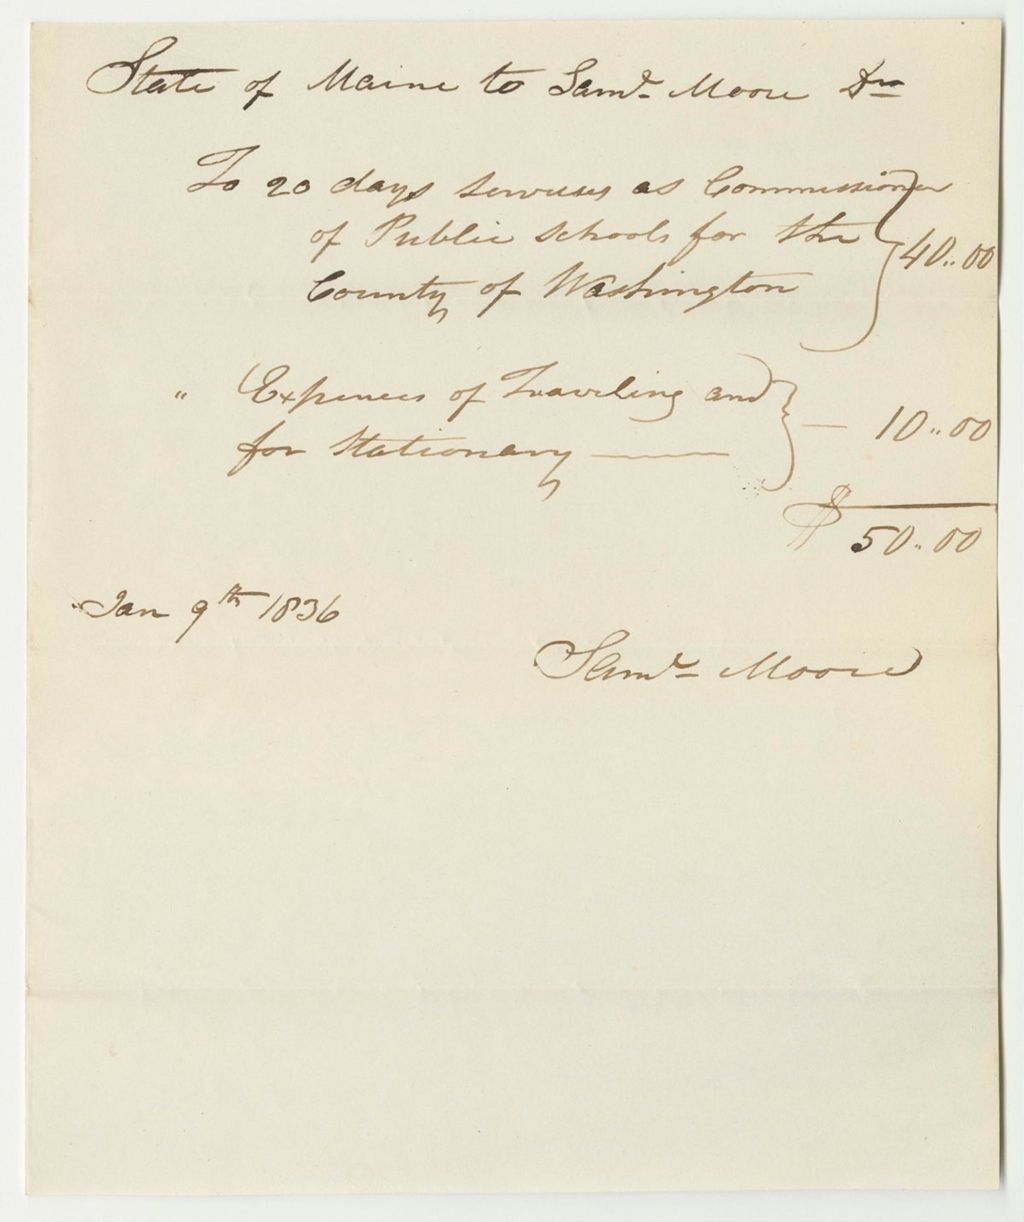 State of Maine to Saml. Moore Dr
To 20 days services as Commissioner
of Public Schools for the
County of Washington } 40..00
" Expences of Traveling and
for Stationary ——— } — 10..00
$ 50..00
Jan 9th 1836
Saml. Moore